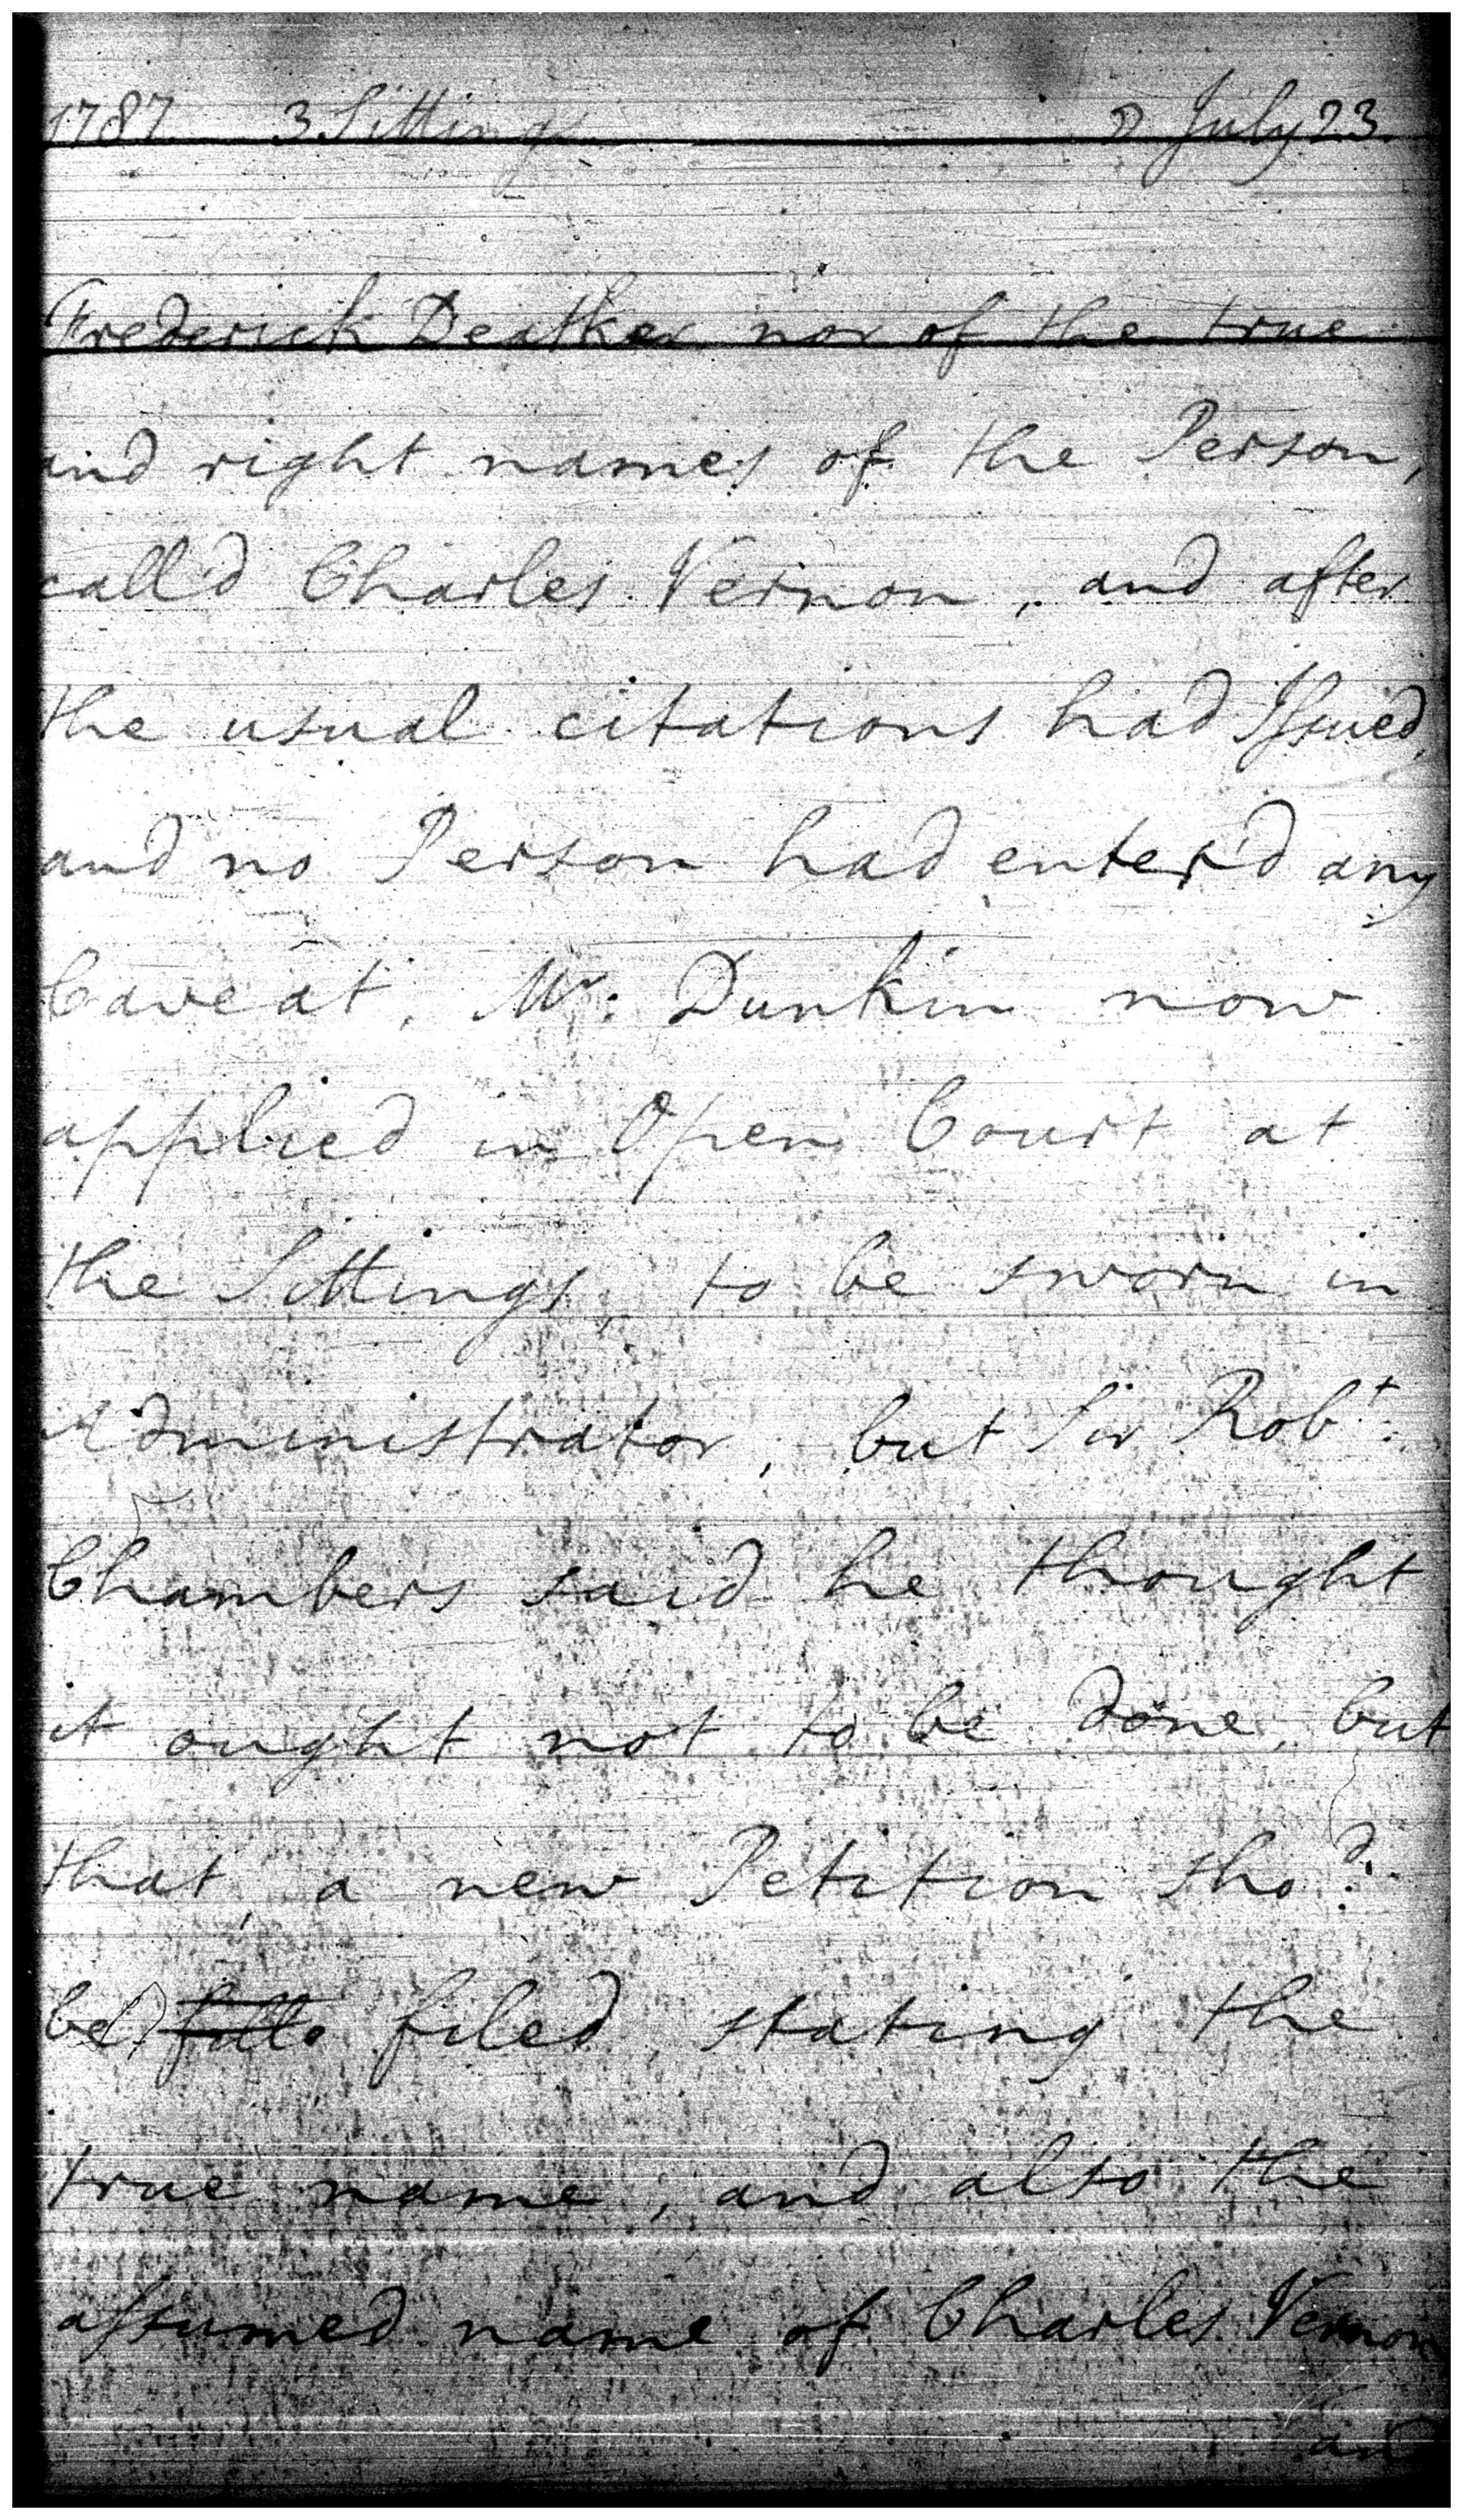 1787 3 Sittings 2 July 23
Frederick Deatker nor of the true
and right names of the Person,
call'd Charles Vernon, and after
the usual citations had Issued,
and no Person had enter'd any
Caveat, Mr. Dunkin now
applied in Open Court at
the Sittings, to be sworn in
Administrator, but Sir Robt.
Chambers said he thought
it ought not to be done, but
that, a new Petition shod.
be filed, stating the
true name, and also the
assumed name of Charles Vernon
and